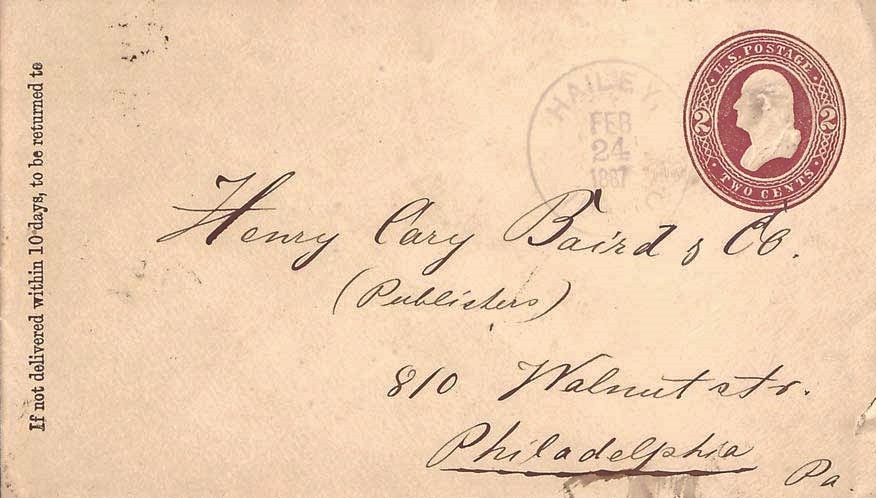 If not delivered within 10 days, to be returned to
HAILEY,
FEB
24
1887
U.S. POSTAGE
2 2
TWO CENTS
Henry Cary Baird & Co.
(Publishers)
810 Walnut str.
Philadelphia
Pa.